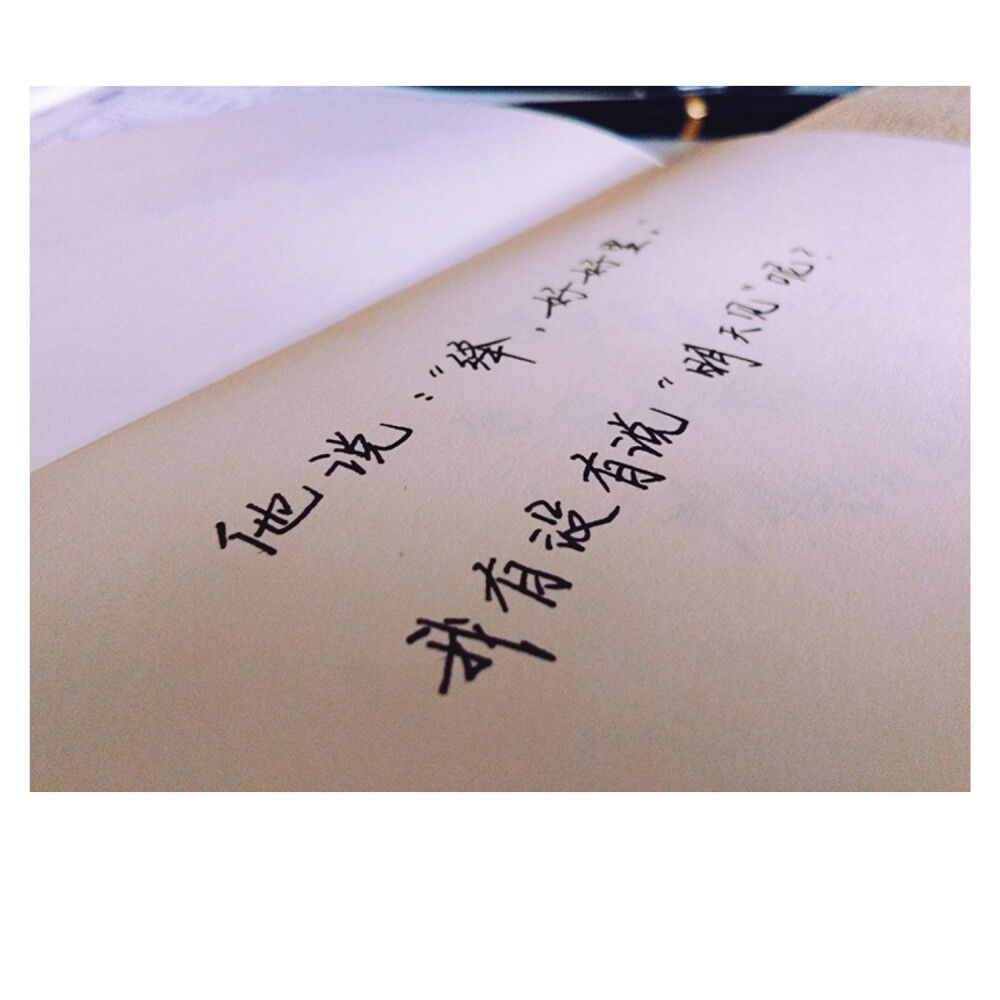 他说：“，好好
有没有说“明天见”呢？